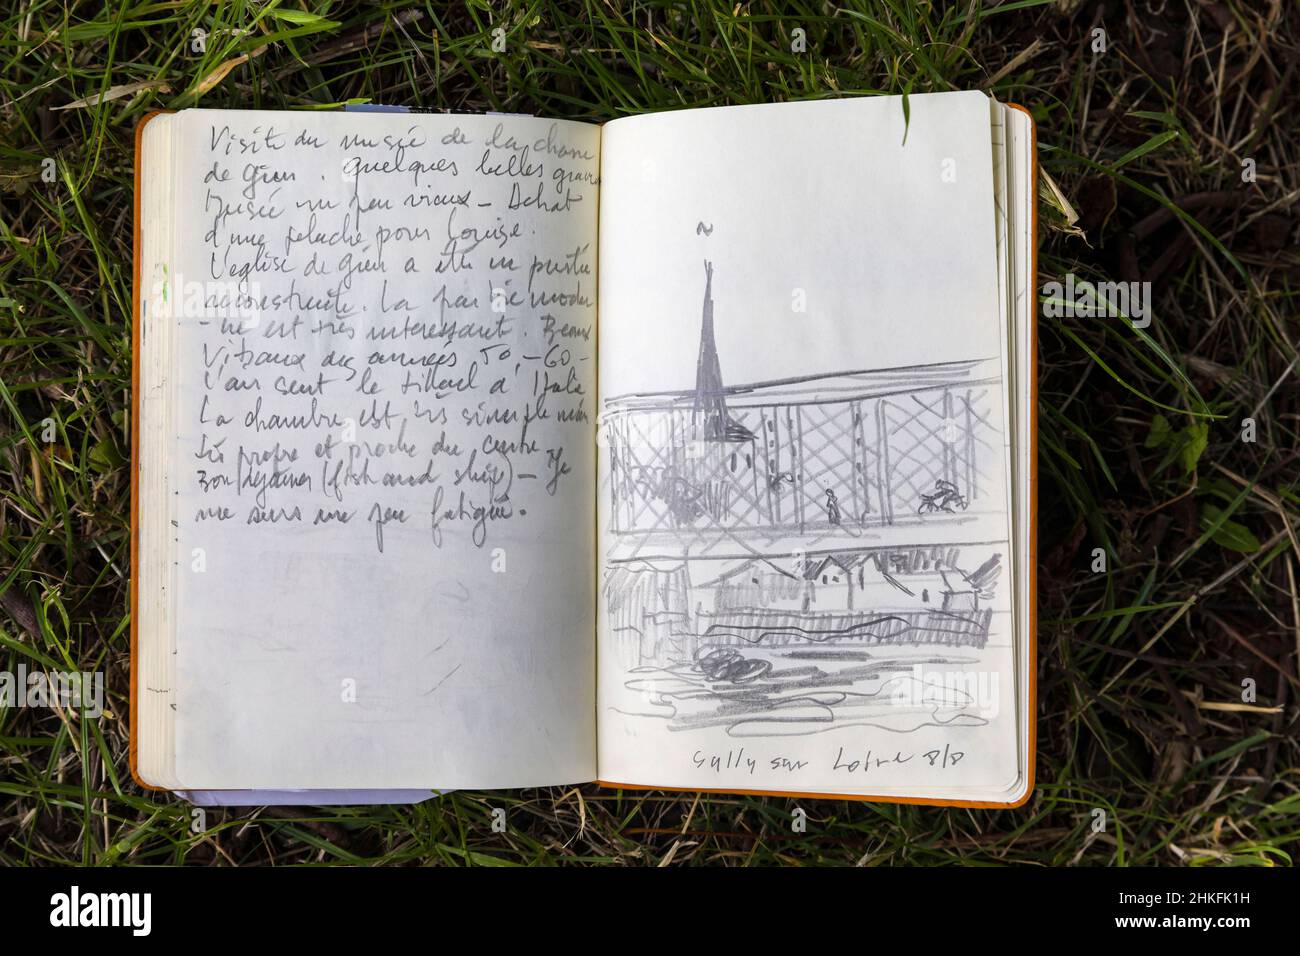 Visite du musée de la chasse
de Gien. Quelques belles gravures
Musée un peu vieux - Achat
d'une peluche pour Louise.
L'église de Gien a été en partie
reconstruite. La partie moder
- ne est très intéressant. Beaux
Vitraux des années 50, - 60 -
La chambre est très simple mais
propre et proche du centre
Bon déjeuner (fish and ship) - Je
me sens un peu fatigué.
Sully sur Loire 8/8
alamy
Image ID: 2HKFK1H
www.alamy.com